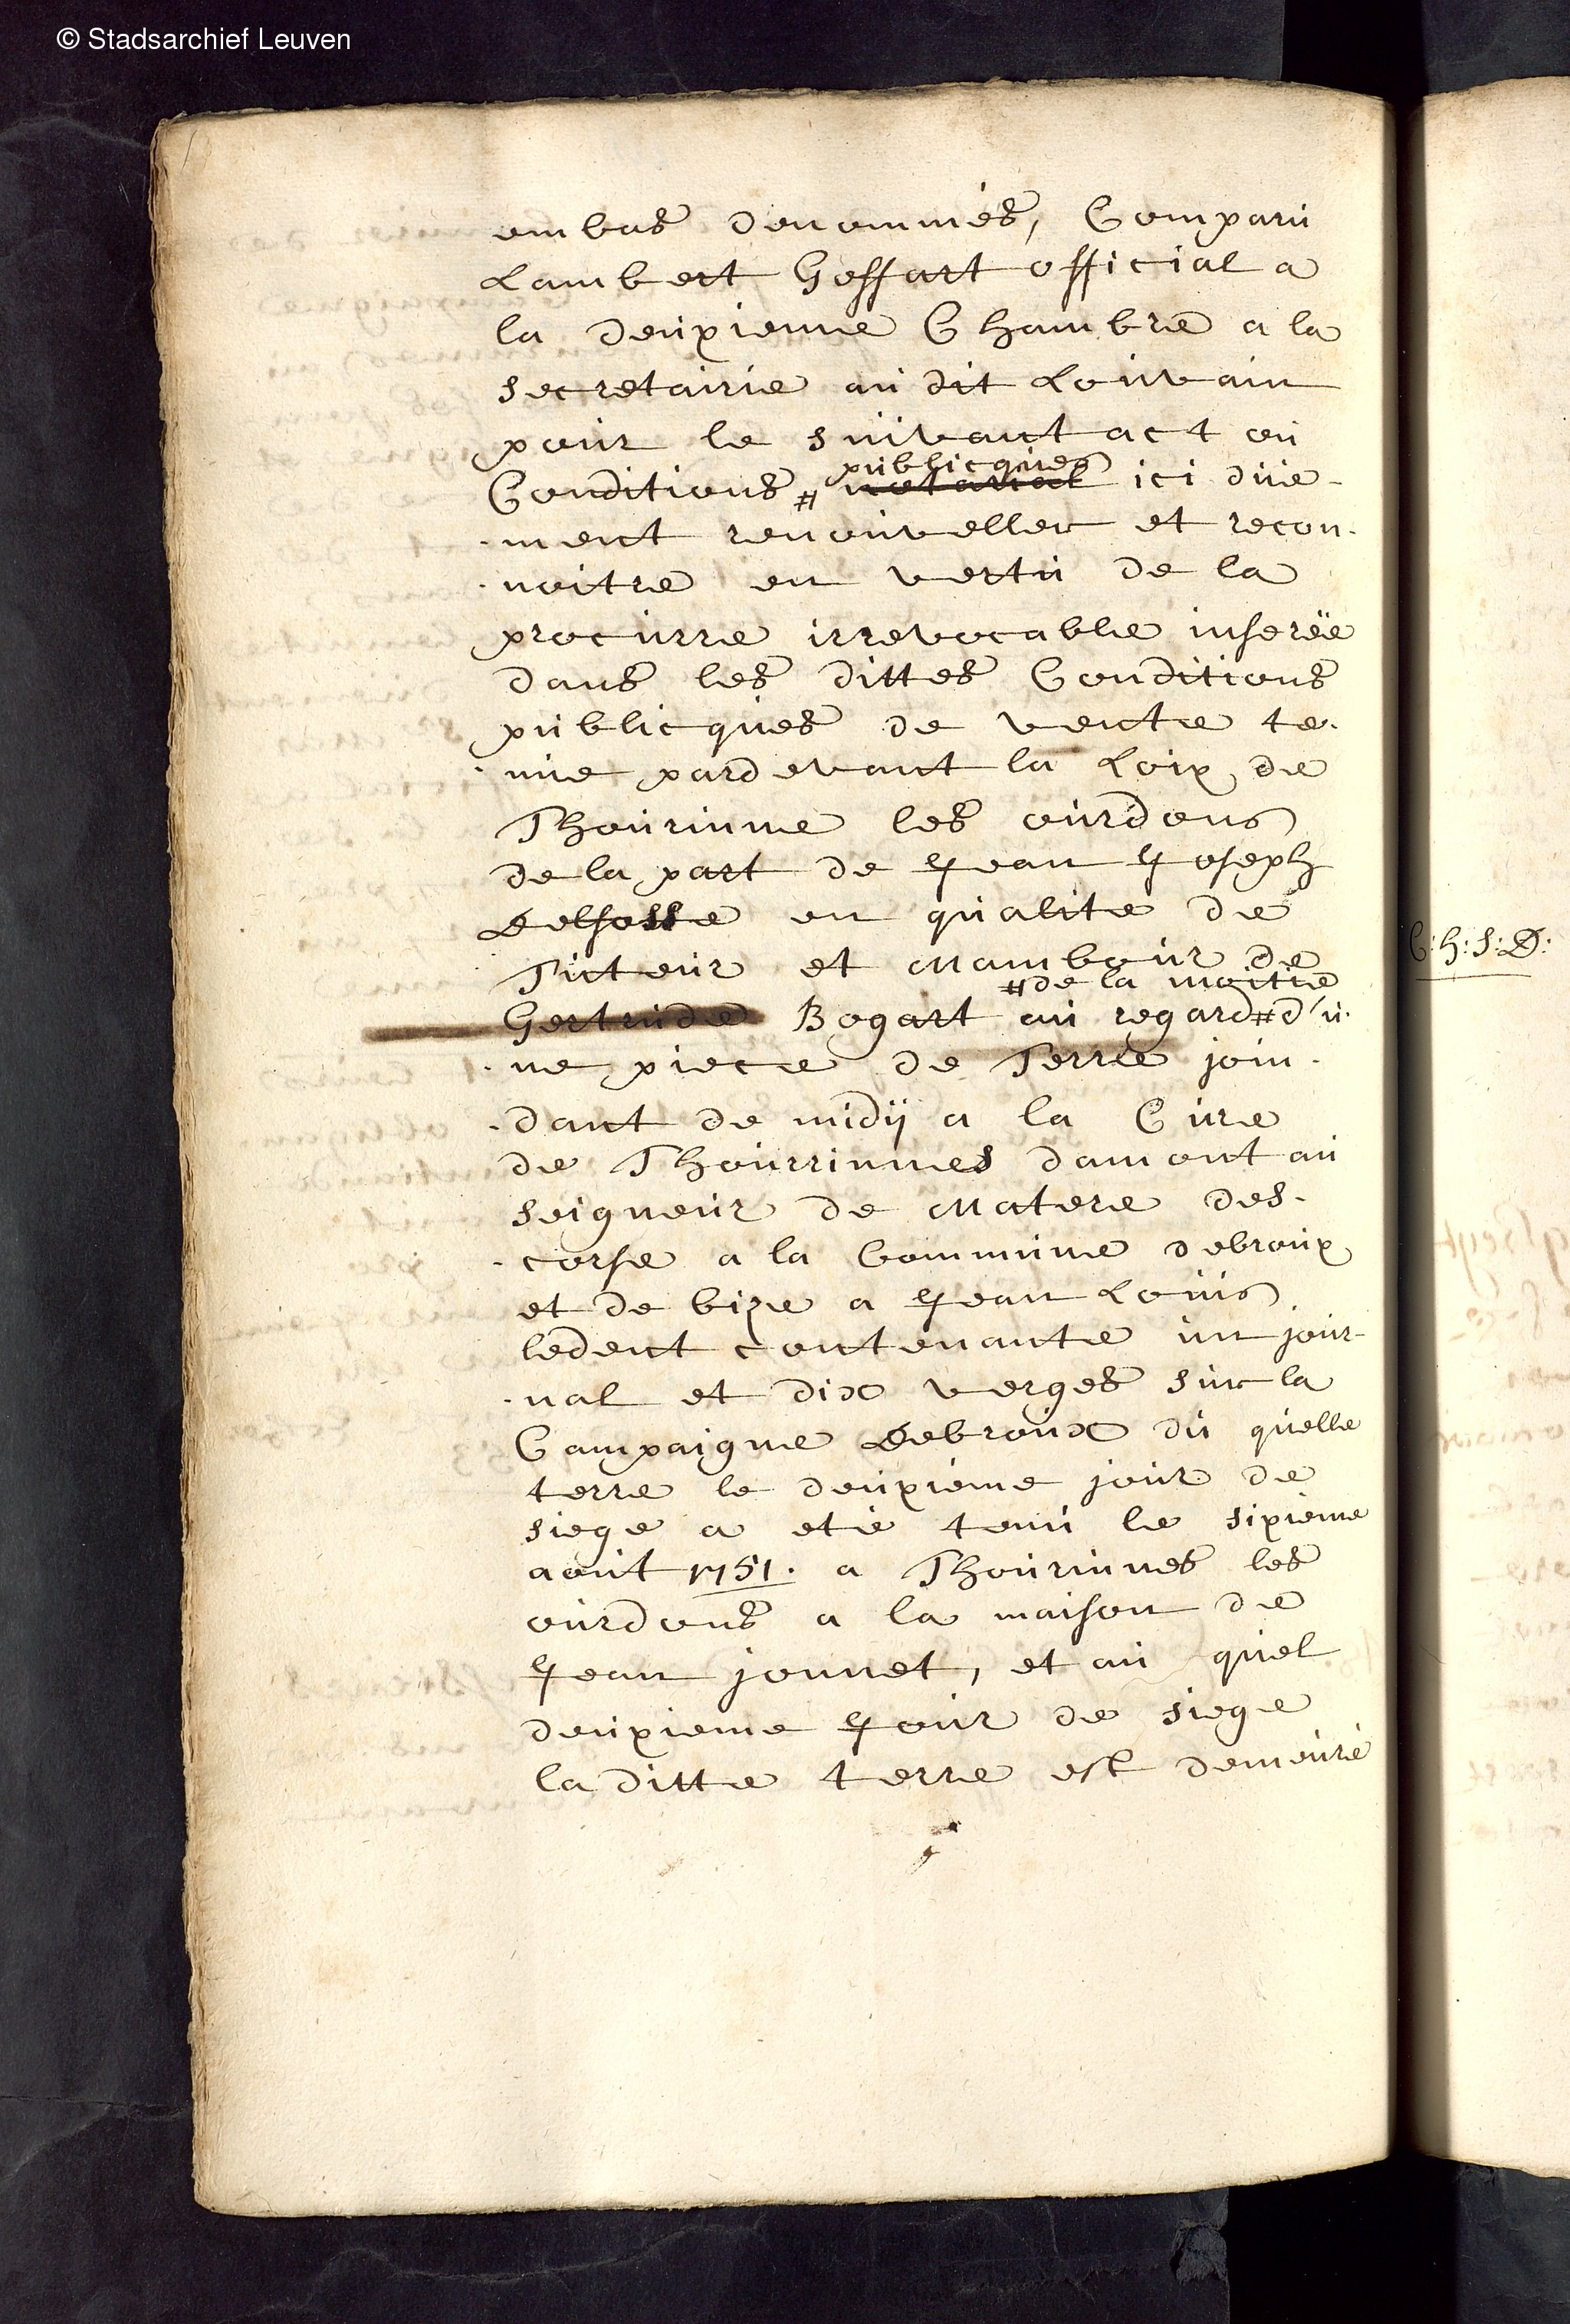 © Stadsarchief Leuven
embas denommés, Comparu
Lambert Goffart official a
la deuxieme Chambre a la
secretairie au dit Louvain
pour le suivant act ou
publicques
Conditions # notariael ici düe-
-ment renouveller et recon-
-noitre en vertu de la
procurre irrevocable inserëe
dans les dittes Conditions
publicques de vente te-
-nue pardevant la Loix de
Thourinne les ourdons
de la part de Jean Joseph
Delfosse en qualite de
Tuteur et Mambour de
# de la moitie
Gertrude Bogart au regard # d'u-
-ne piece de Terre join-
-dant de midÿ a la Cure
de Thourrinnes damont au
seigneur de Matere des-
-corse a la Commune debroux
et de bize a Jean Louis
ledent contenante un jour-
-nal et dix verges sur la
Campaigne Debroux du quelle
terre le deuxieme jour de
siege a eté tenu le sixieme
aout 1751. a Thourinnes les
ourdons a la maison de
Jean jonnet, et au quel
deuxieme Jour de siege
la ditte terre est demeuré
C: h: S: D: